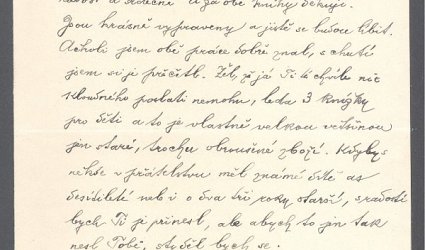 radost a srdečně Ti za obě knihy děkuji.
Jsou krásně vypraveny a jistě se budou líbit.
Ačkoli jsem obě práce dobře znal, s chutí
jsem si je přečetl. Žel, že já Ti tu chvíli nic
kloudného poslati nemohu, leda 3 knížky
pro děti a to je vlastně velkou většinou
jen staré, trochu obnošené zboží. Kdybys
někde v přátelstvu měl známé dítě as
desítileté neb i o dva tři roky starší, s radostí
bych Ti je přinesl, ale abych to jen tak
nesl Tobě, styděl bych se.